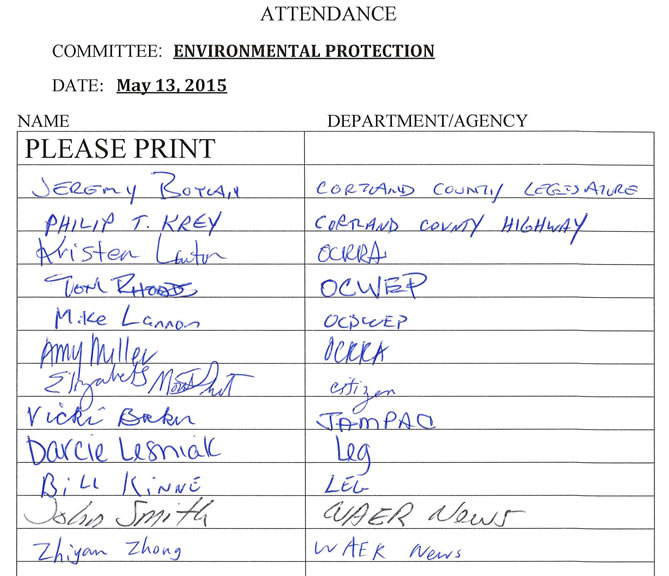 ATTENDANCE
COMMITTEE: ENVIRONMENTAL PROTECTION
DATE: May 13, 2015
NAME DEPARTMENT/AGENCY
PLEASE PRINT
JEREMY BOYLAN CORTLAND COUNTY LEGISATURE
PHILIP T. KREY CORTLAND COUNTY HIGHWAY
Kristen Lawton OCRRA
TOM RHOADS OCWEP
Mike Lannon OCDWEP
Amy Miller OCRRA
Elizabeth citizen
Vicki Baker JAMPAC
Darcie Lesniak Leg
BILL KINNE LEG
John Smith WAER News
Zhiyan Zhong WAER News